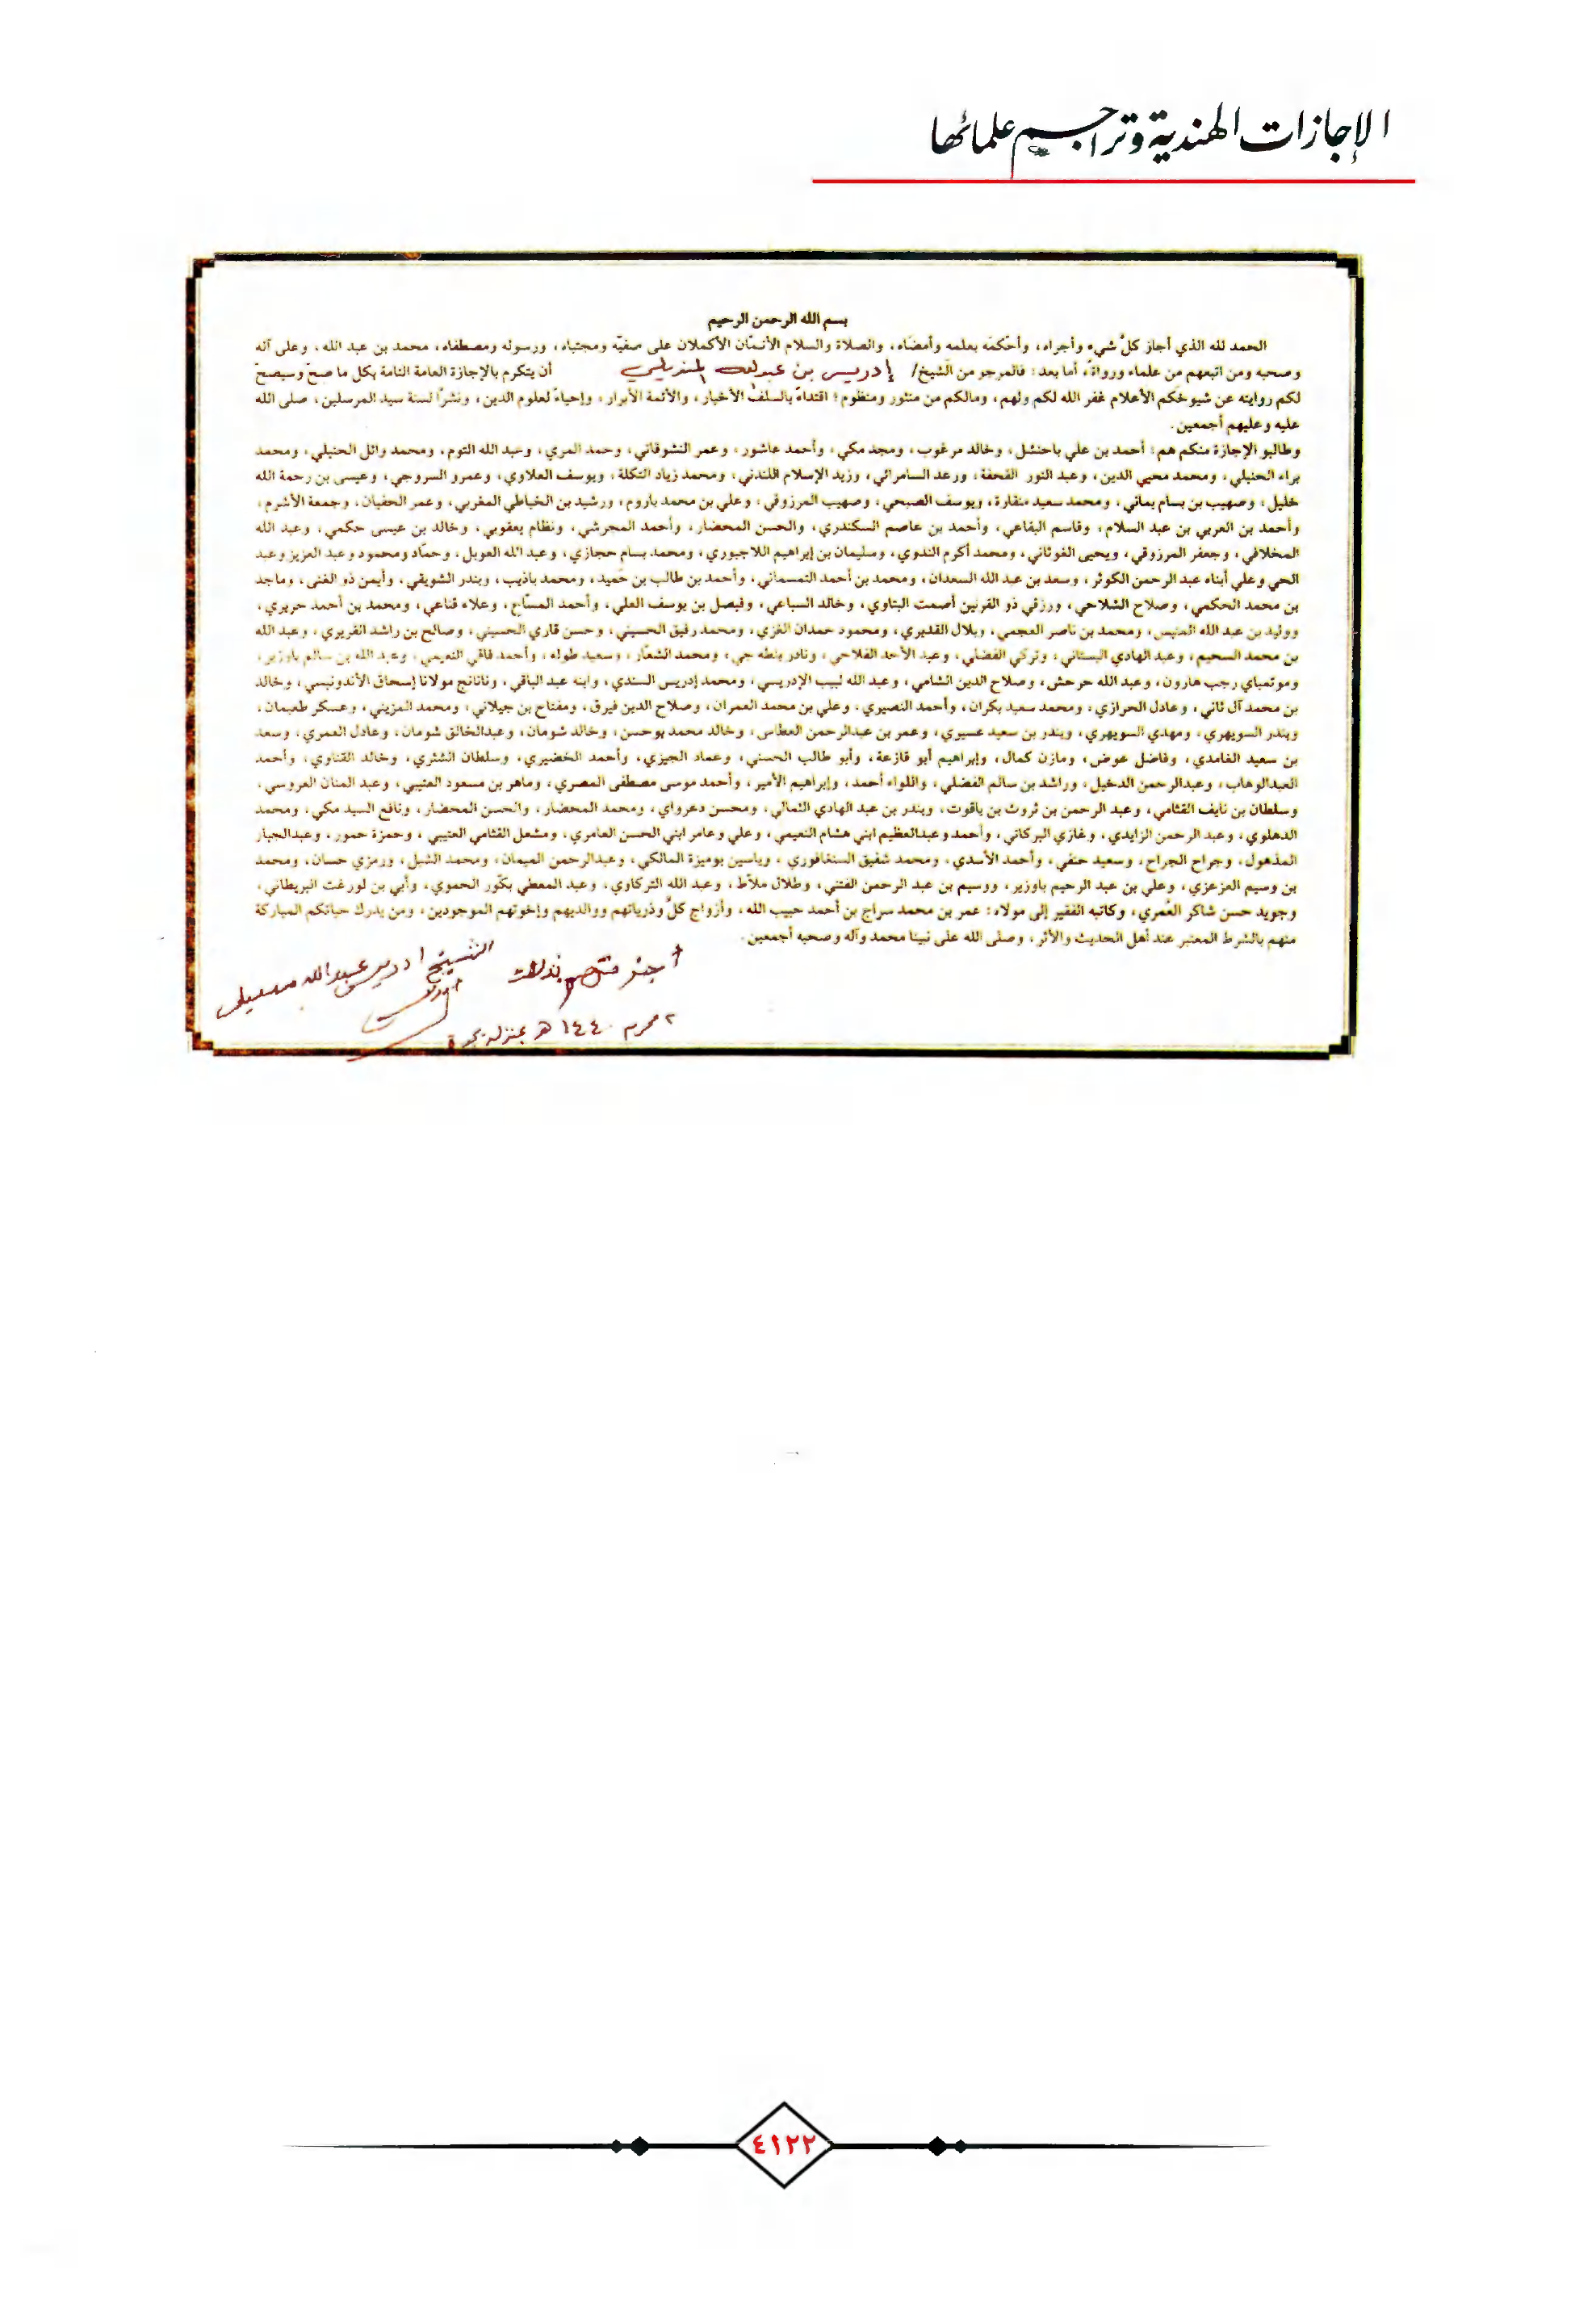 الإجازات الهندية وتراجم علمائها
بسم الله الرحمن الرحيم
الحمد لله الذي أجاز كلَّ شيء وأجراه، وأحكمَه بعلمه وأمضَاه، والصلاة والسلام الأتمّان الأكملان على صفيّه ومجتباه، ورسوله ومصطفاه، محمد بن عبد الله، وعلى آله
وصحبه ومن اتبعهم من علماء ورواة، أما بعد: فالمرجو من الشيخ/ إدريس بن عبد الله المنديلي أن يتكرم بالإجازة العامة التامة بكل ما صحّ وسيصحّ
لكم روايته عن شيوخكم الأعلام غفر الله لكم ولهم، ومالكم من منثور ومنظوم؛ اقتداءً بالسلف الأخيار، والأئمة الأبرار، وإحياءً لعلوم الدين، ونشرًا لسنة سيد المرسلين، صلى الله
عليه وعليهم أجمعين.
وطالبو الإجازة منكم هم: أحمد بن علي باحنشل، وخالد مرغوب، ومجد مكي، وأحمد عاشور، وعمر النشوقاتي، وحمد المري، وعبد الله التوم، ومحمد وائل الحنبلي، ومحمد
براء الحنبلي، ومحمد محيي الدين، وعبد النور القحفة، ورعد السامرائي، وزيد الإسلام اللندني، ومحمد زياد التكلة، ويوسف العلاوي، وعمرو السروجي، وعيسى بن رحمة الله
خليل، وصهيب بن بسام يماني، ومحمد سعيد منقارة، ويوسف الصبحي، وصهيب المرزوقي، وعلي بن محمد باروم، ورشيد بن الخياطي المغربي، وعمر الحفيان، وجمعة الأشرم،
وأحمد بن العربي بن عبد السلام، وقاسم البقاعي، وأحمد بن عاصم السكندري، والحسن المحضار، وأحمد المجرشي، ونظام يعقوبي، وخالد بن عيسى حكمي، وعبد الله
المخلافي، وجعفر المرزوقي، ويحيى الغوثاني، ومحمد أكرم الندوي، وسليمان بن إبراهيم اللاجبوري، ومحمد بسام حجازي، وعبد الله العوبل، وحمّاد ومحمود وعبد العزيز وعبد
الحي وعلي أبناء عبد الرحمن الكوثر، وسعد بن عبد الله السعدان، ومحمد بن أحمد التمسماني، وأحمد بن طالب بن حميد، ومحمد باذيب، وبندر الشويقي، وأيمن ذو الغنى، وماجد
بن محمد الحكمي، وصلاح الشلاحي، ورزقي ذو القرنين أصمت البتاوي، وخالد السباعي، وفيصل بن يوسف العلي، وأحمد المسّاح، وعلاء قناعي، ومحمد بن أحمد حريري،
ووليد بن عبد الله المنيس، ومحمد بن ناصر العجمي، وبلال القديري، ومحمود حمدان الغزي، ومحمد رفيق الحسيني، وحسن قاري الحسيني، وصالح بن راشد القريري، وعبد الله
بن محمد السحيم، وعبد الهادي البستاني، وتركي الفضلي، وعبد الأحد الفلاحي، ونادر بلطه جي، ومحمد الشعّار، وسعيد طوله، وأحمد فاقي النعيمي، وعبد الله بن سالم باوزير،
وموتمباي رجب هارون، وعبد الله حرحش، وصلاح الدين الشامي، وعبد الله لبيب الإدريسي، ومحمد إدريس السندي، وابنه عبد الباقي، ونانانج مولانا إسحاق الأندونيسي، وخالد
بن محمد آل ثاني، وعادل الحرازي، ومحمد سعيد بكران، وأحمد النصيري، وعلي بن محمد العمران، وصلاح الدين فيرق، ومفتاح بن جيلاني، ومحمد المزيني، وعسكر طعيمان،
وبندر السويهري، ومهدي السويهري، وبندر بن سعيد عسيري، وعمر بن عبدالرحمن العطاس، وخالد محمد بوحسن، وخالد شومان، وعبدالخالق شومان، وعادل العمري، وسعد
بن سعيد الغامدي، وفاضل عوض، ومازن كمال، وإبراهيم أبو قازعة، وأبو طالب الحسني، وعماد الجيزي، وأحمد الخضيري، وسلطان الشثري، وخالد القناوي، وأحمد
العبدالوهاب، وعبدالرحمن الدخيل، وراشد بن سالم الفضلي، واللواء أحمد، وإبراهيم الأمير، وأحمد موسى مصطفى المصري، وماهر بن مسعود العتيبي، وعبد المنان العروسي،
وسلطان بن نايف القثامي، وعبد الرحمن بن ثروت بن ياقوت، وبندر بن عبد الهادي الثمالي، ومحسن دعرواي، ومحمد المحضار، والحسن المحضار، ونافع السيد مكي، ومحمد
الدهلوي، وعبد الرحمن الزايدي، وغازي البركاتي، وأحمد وعبدالعظيم ابني هشام النعيمي، وعلي وعامر ابني الحسن العامري، ومشعل القثامي العتيبي، وحمزة حمور، وعبدالجبار
المذهول، وجراح الجراح، وسعيد حنفي، وأحمد الأسدي، ومحمد شفيق السنغافوري، وياسين بوميزة المالكي، وعبدالرحمن الميمان، ومحمد الشبل، ورمزي حسان، ومحمد
بن وسيم العزعزي، وعلي بن عبد الرحيم باوزير، ووسيم بن عبد الرحمن الفتني، وطلال ملاّط، وعبد الله التركاوي، وعبد المعطي بكّور الحموي، وأبي بن لورغت البريطاني،
وجويد حسن شاكر العُمري، وكاتبه الفقير إلى مولاه: عمر بن محمد سراج بن أحمد حبيب الله، وأزواج كلٍّ وذرياتهم ووالديهم وإخوتهم الموجودين، ومن يدرك حياتكم المباركة
منهم بالشرط المعتبر عند أهل الحديث والأثر، وصلى الله على نبينا محمد وآله وصحبه أجمعين.
أجزتهم بذلك الشيخ إدريس عبدالله
٢ محرم ١٤٤٠هـ بمنزله بجدة
٤١٢٢